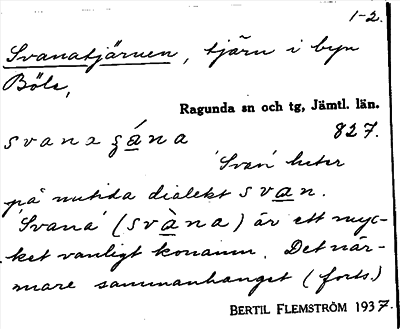 1-2.
Svanatjärnen, tjärn i byn
Böle,
Ragunda sn och tg, Jämtl. län.
827.
'Svan' heter
på nutida dialekt svan.
'Svana' (svàna) är ett myc-
ket vanligt konamn. Det när-
mare sammanhanget (forts.)
BERTIL FLEMSTRÖM 1937.